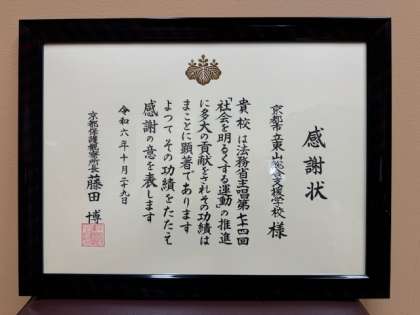 感謝状
京都市立東山総合支援学校 様
貴校は法務省主唱第七十四回
「社会を明るくする運動」の推進
に多大の貢献をされその功績は
まことに顕著であります
よつてその功績をたたえ
感謝の意を表します
令和六年十月二十九日
京都保護観察所長 藤田 博